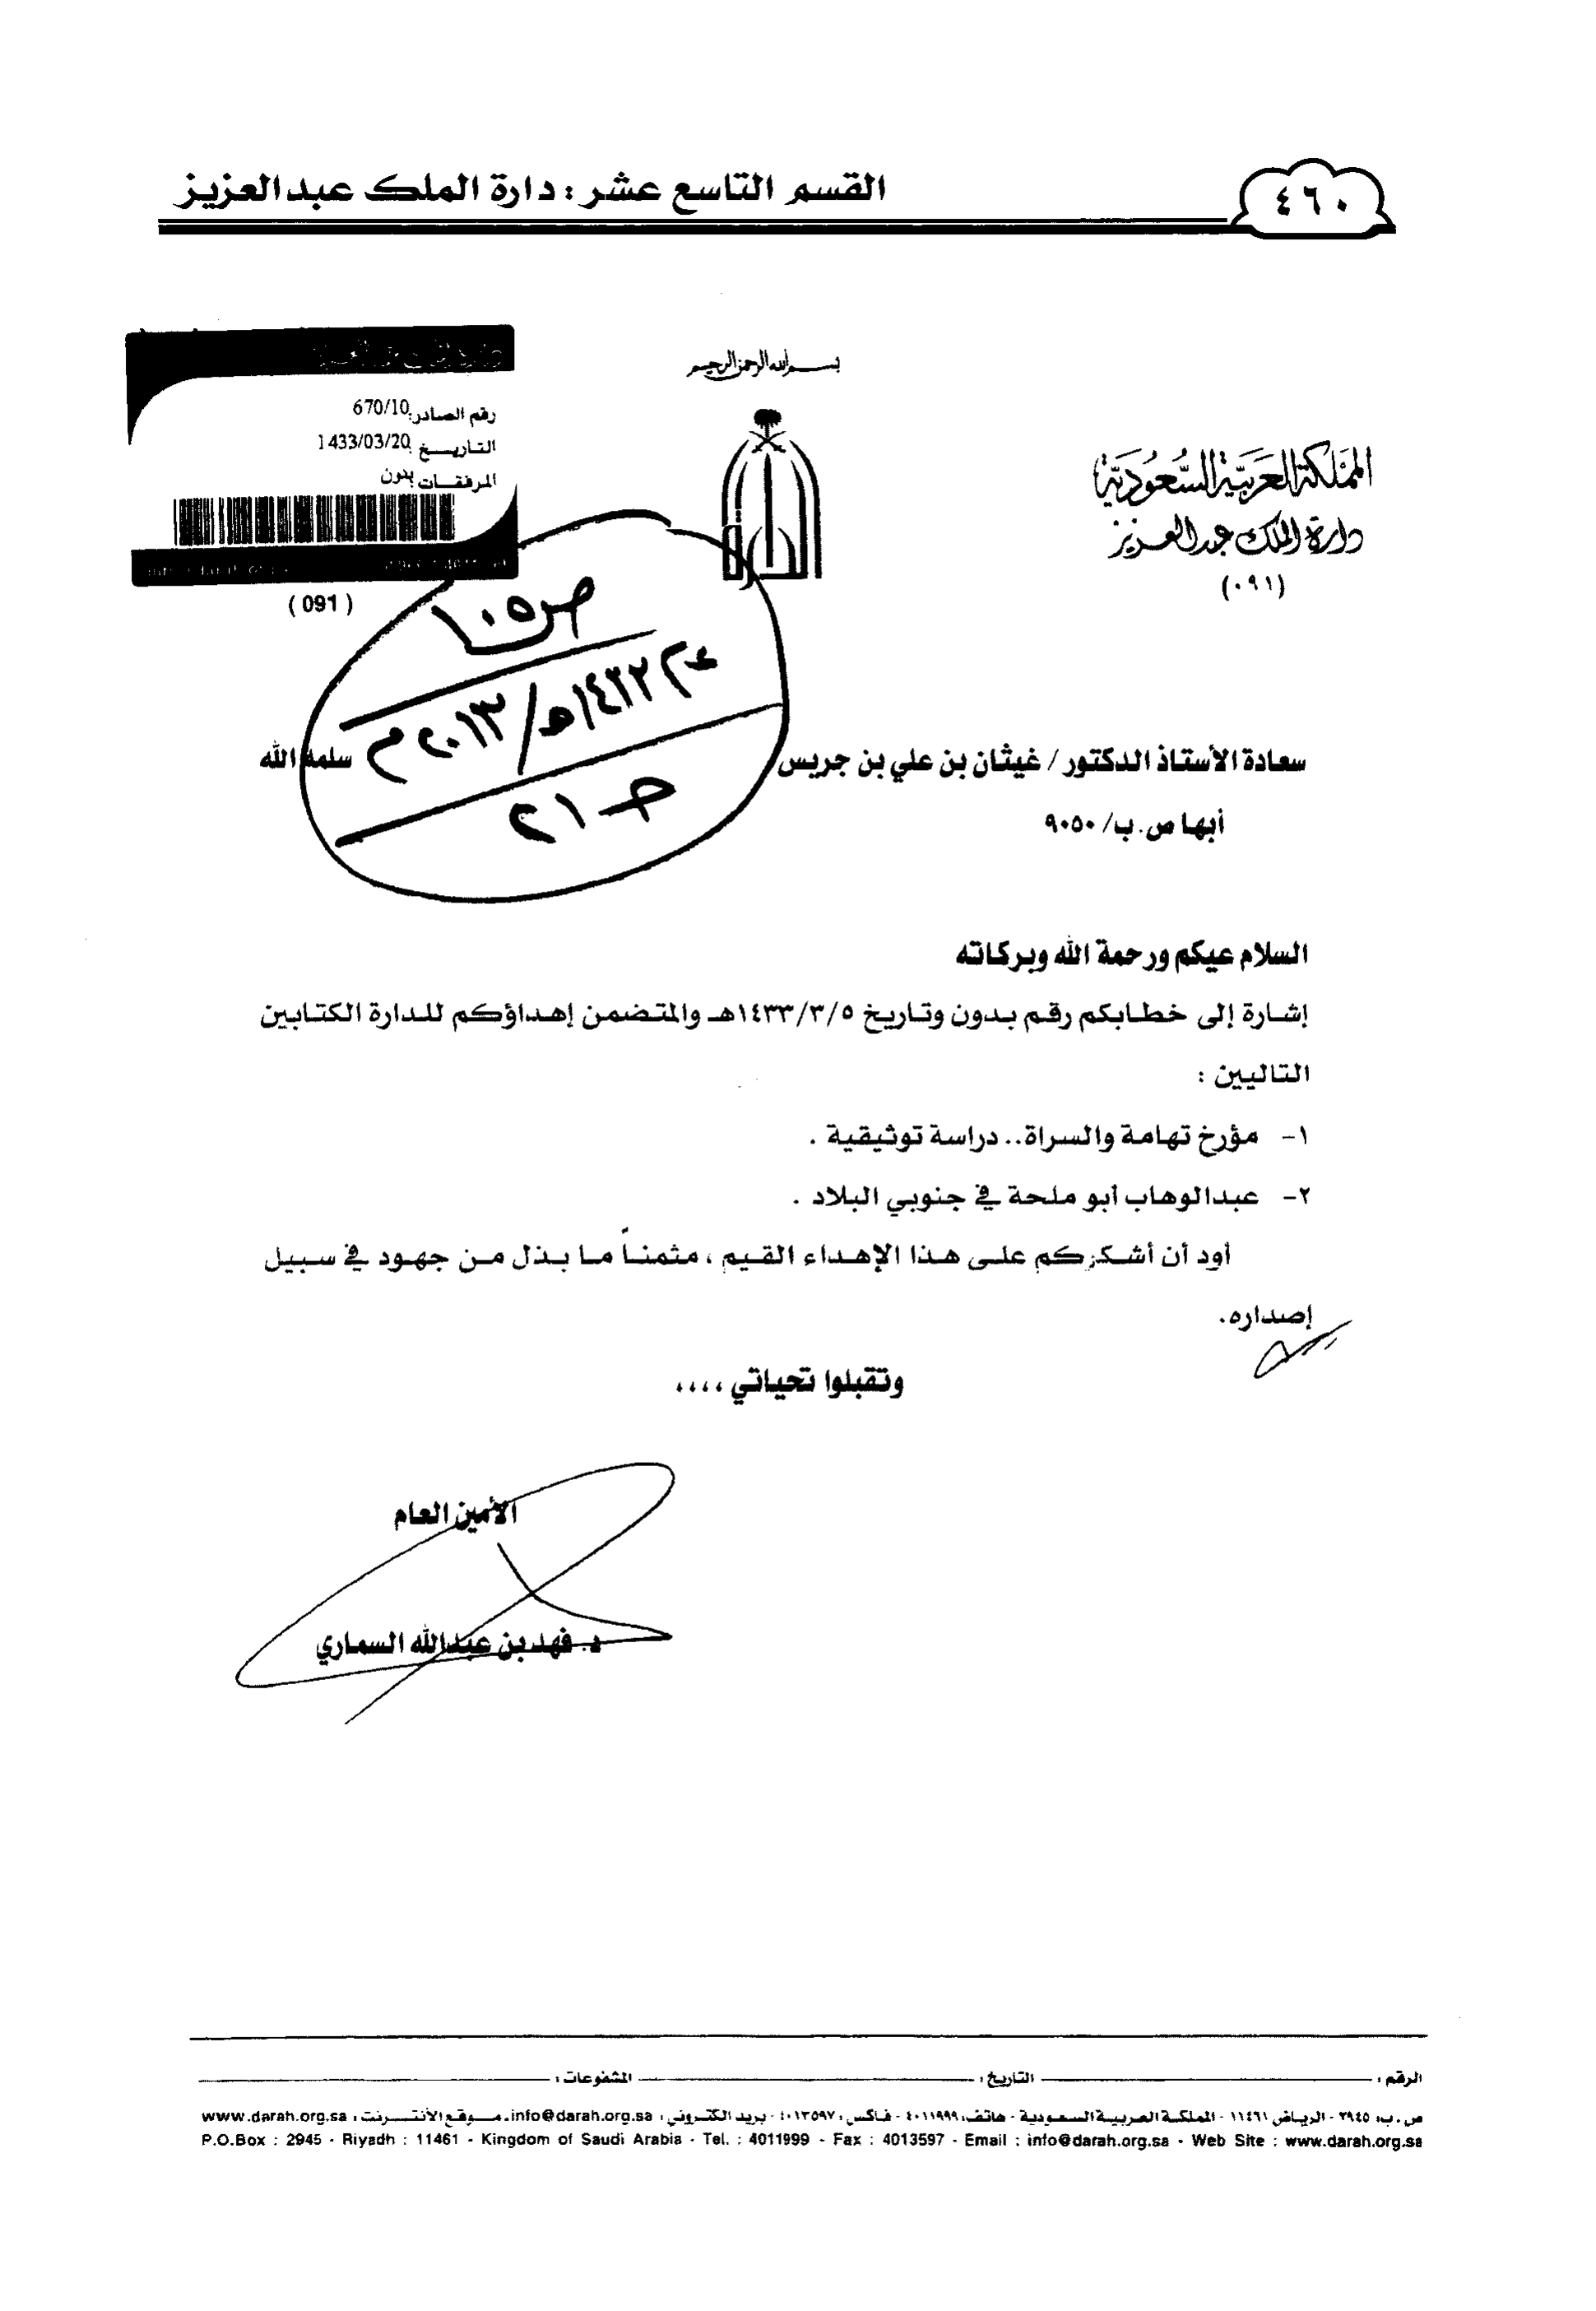 ٤٦٠
القسم التاسع عشر : دارة الملك عبدالعزيز
بسم الله الرحمن الرحيم
المملكة العربية السعودية
دارة الملك عبد العزيز
(٠٩١)
رقم الصادر: 670/10
التاريخ: 1433/03/20
المرفقات: بدون
(091)
سعادة الأستاذ الدكتور / غيثان بن علي بن جريس سلمه الله
أبها ص.ب/ ٩٠٥٠
السلام عيكم ورحمة الله وبركاته
إشارة إلى خطابكم رقم بدون وتاريخ ١٤٣٣/٣/٥هـ والمتضمن إهداؤكم للدارة الكتابين
التاليين :
١- مؤرخ تهامة والسراة.. دراسة توثيقية .
٢- عبدالوهاب أبو ملحة في جنوبي البلاد .
أود أن أشكركم على هذا الإهداء القيم ، مثمناً ما بذل من جهود في سبيل
إصداره.
وتقبلوا تحياتي ،،،،
الأمين العام
د. فهد بن عبدالله السماري
الرقم : التاريخ : المشفوعات :
ص.ب: ٢٩٤٥ - الرياض ١١٤٦١ - المملكة العربية السعودية - هاتف: ٤٠١١٩٩٩ - فاكس: ٤٠١٣٥٩٧ - بريد الكتروني : info@darah.org.sa - موقع الأنترنت : www.darah.org.sa
P.O.Box : 2945 - Riyadh : 11461 - Kingdom of Saudi Arabia - Tel. : 4011999 - Fax : 4013597 - Email : info@darah.org.sa - Web Site : www.darah.org.sa